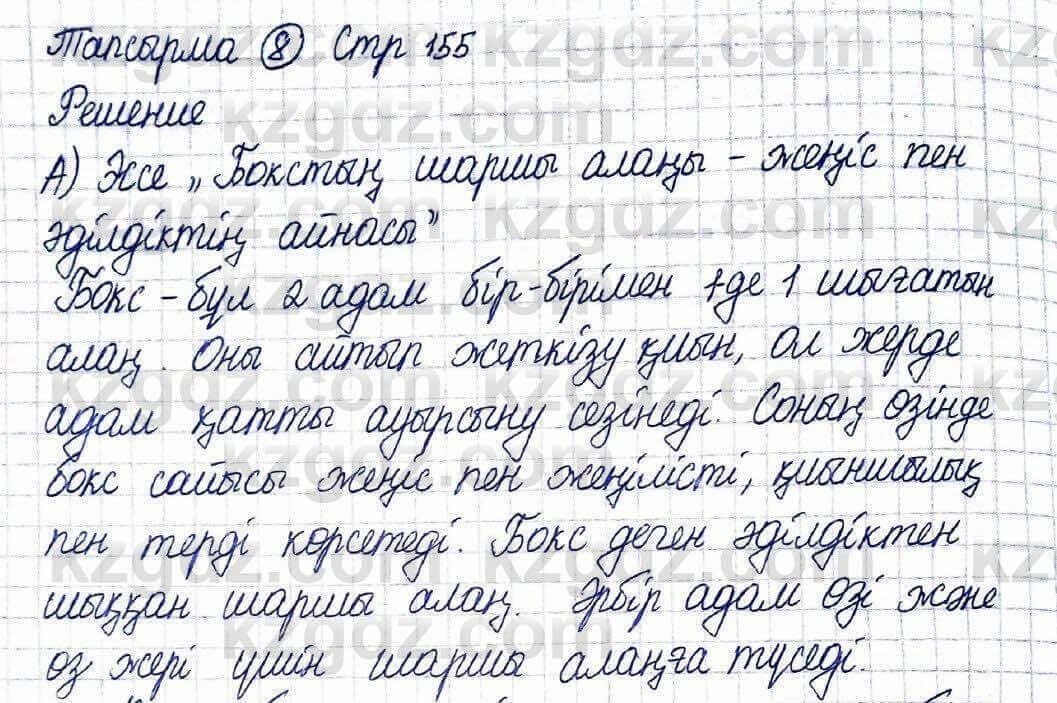 Тапсырма 8 Стр 155
Решение
А) Эссе „Бокстың шаршы алаңы - жеңіс пен
әділдіктің айнасы”
Бокс - бұл 2 адам бір-бірімен 1де 1 шығатын
алаң. Оны айтып жеткізу қиын, ол жерде
адам қатты ауырсыну сезінеді. Соның өзінде
бокс сайысы жеңіс пен жеңілісті, қиыншылық
пен терді көрсетеді. Бокс деген әділдіктен
шыққан шаршы алаң. Әрбір адам өзі және
өз жері үшін шаршы алаңға түседі.